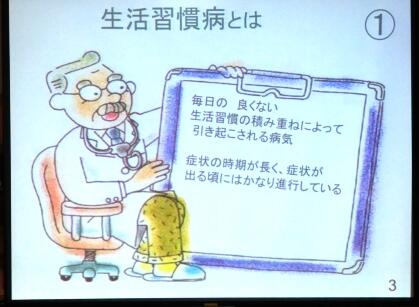 生活習慣病とは
①
毎日の 良くない
生活習慣の積み重ねによって
引き起こされる病気
症状の時期が長く、症状が
出る頃にはかなり進行している
3